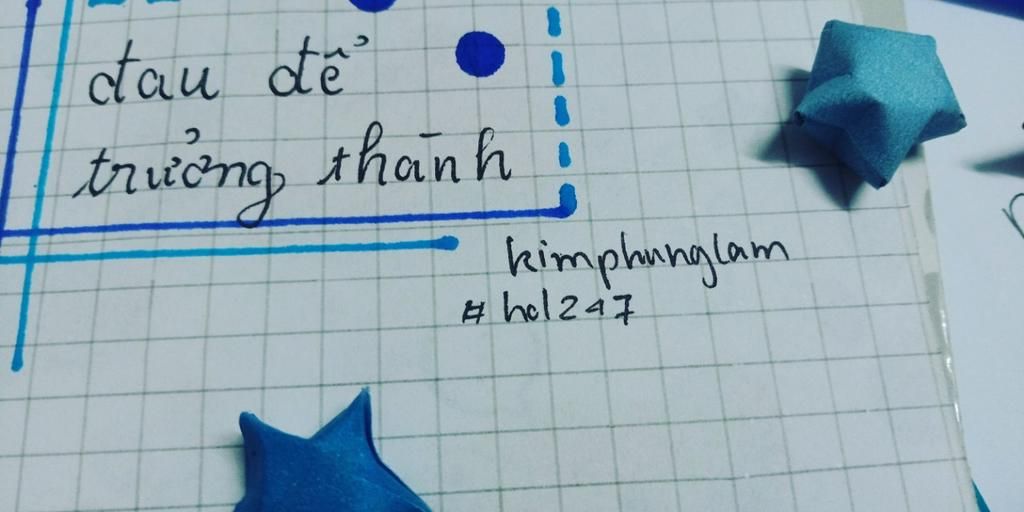 đau để
trưởng thành
kimphunglam
#hcl247